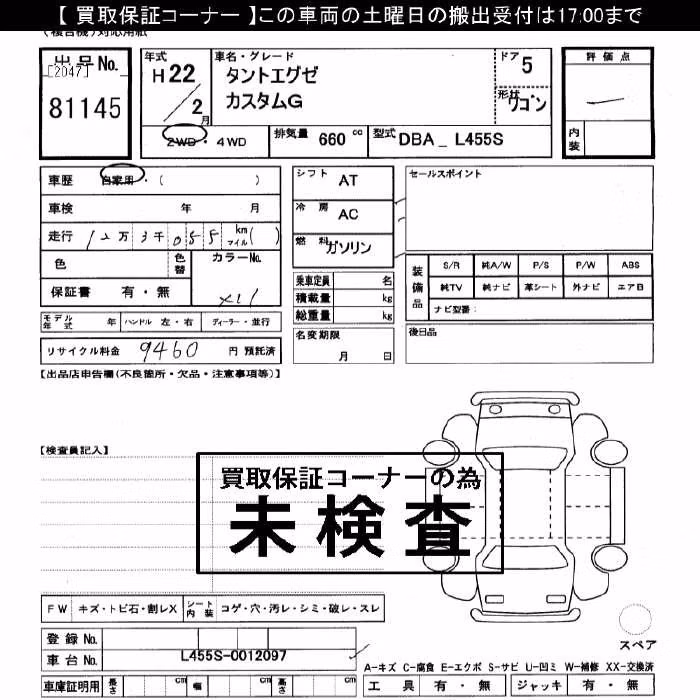 【 買取保証コーナー 】この車両の土曜日の搬出受付は17:00まで
出品No. [2047] 81145
年式 H22 / 2月
車名・グレード タントエグゼ カスタムG
ドア 5
形状 ワゴン
評価点
内装
2WD・4WD
排気量 660cc
型式 DBA_L455S
車歴 自家用・( )
車検 年 月
走行 12万3千055 km マイル( )
色 色替
カラーNo. X11
保証書 有・無
モデル年式 年 ハンドル 左・右 ディーラー・並行
リサイクル料金 9460 円 預託済
シフト AT
冷房 AC
燃料 ガソリン
乗車定員 名
積載量 kg
総重量 kg
名変期限 月 日
セールスポイント
装備品 S/R 純A/W P/S P/W ABS
純TV 純ナビ 革シート 外ナビ エアB
ナビ型番:
後日品
【出品店申告欄(不良箇所・欠品・注意事項等)】
【検査員記入】
買取保証コーナーの為
未検査
FW キズ・トビ石・割レX シート内装 コゲ・穴・汚レ・シミ・破レ・スレ
登録No.
車台No. L455S-0012097
スペア
A-キズ C-腐食 E-エクボ S-サビ U-凹ミ W-補修 XX-交換済
車庫証明用 長さ cm 幅 cm 高さ cm
工具 有・無 ジャッキ 有・無